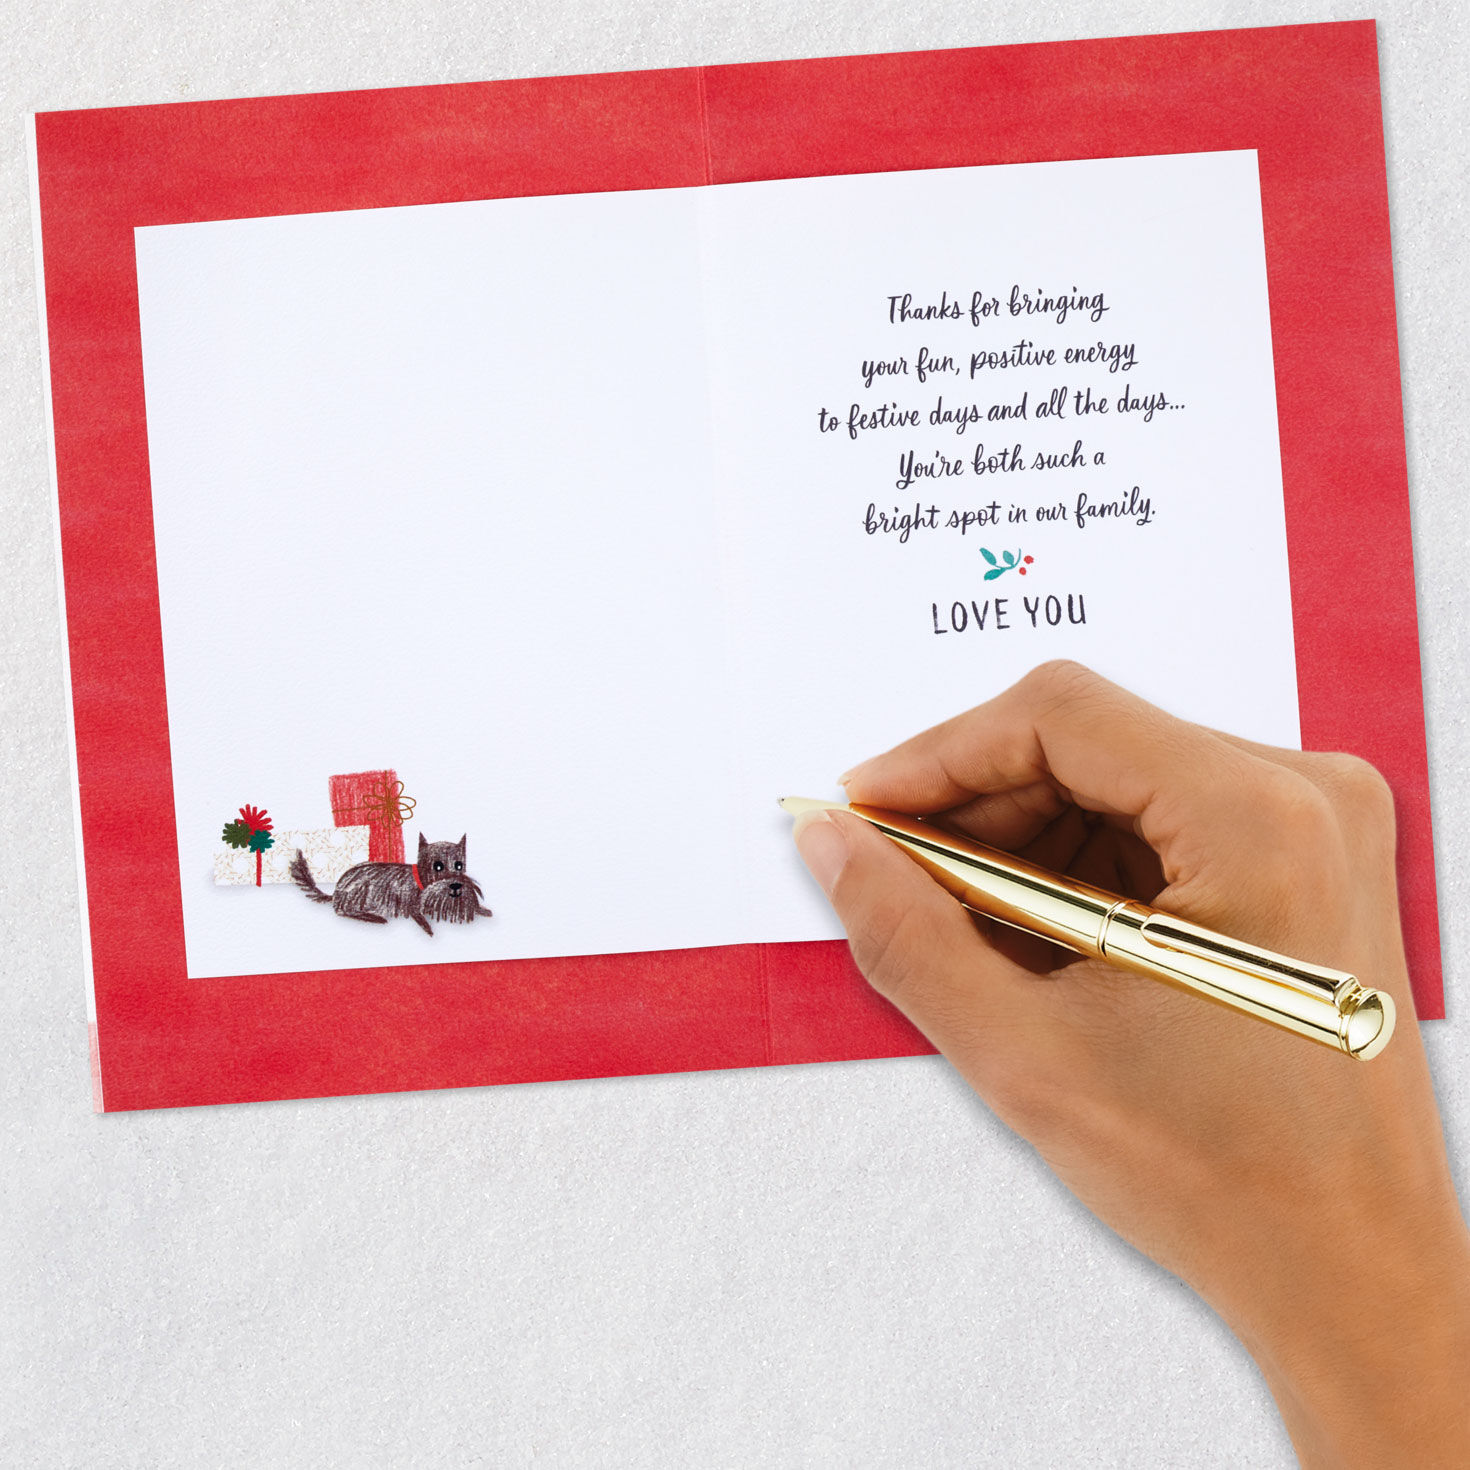 Thanks for bringing
your fun, positive energy
to festive days and all the days...
You're both such a
bright spot in our family.
LOVE YOU